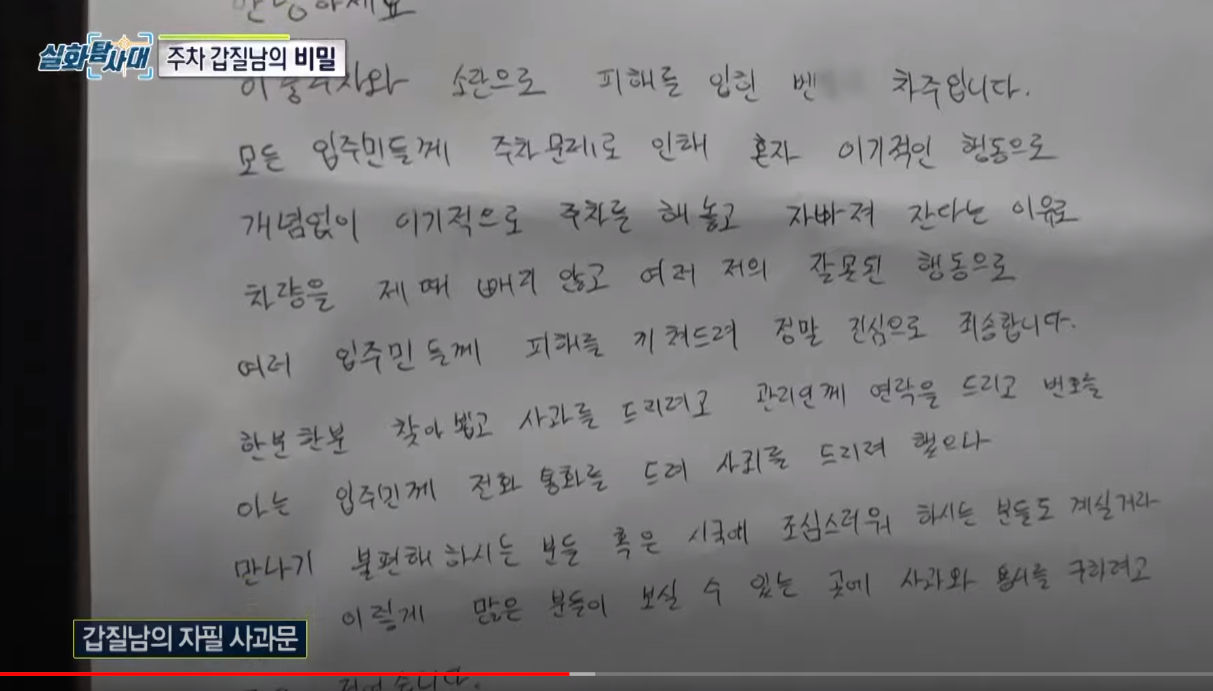 실화탐사대 주차 갑질남의 비밀
안녕하세요
이중주차와 소란으로 피해를 입힌 벤 차주입니다.
모든 입주민들께 주차문제로 인해 혼자 이기적인 행동으로
개념없이 이기적으로 주차를 해놓고 자빠져 잔다는 이유로
차량을 제때 빼지 않고 여러 저의 잘못된 행동으로
여러 입주민들께 피해를 끼쳐드려 정말 진심으로 죄송합니다.
한분한분 찾아뵙고 사과를 드리려고 관리인께 연락을 드리고 번호를
아는 입주민께 전화 통화를 드려 사죄를 드리려 했으나
만나기 불편해하시는 분들 혹은 시국에 조심스러워 하시는 분들도 계실거라
이렇게 많은 분들이 보실 수 있는 곳에 사과와 용서를 구하려고
갑질남의 자필 사과문